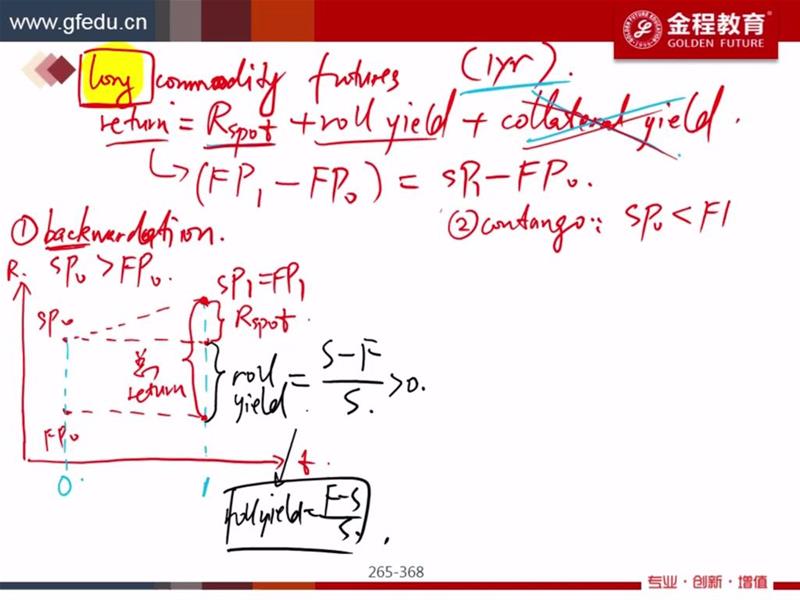 www.gfedu.cn
金程教育
GOLDEN FUTURE
long commodity futures (1yr).
return = Rspot + roll yield + collateral yield.
(FP₁ - FP₀) = SP₁ - FP₀.
① backwardation.
SP₀ > FP₀.
② contango: SP₀ < F
R.
SP₁ = FP₁
SP₀
Rspot.
return
roll yield = S-F / S. > 0.
FP₀
t.
0
1
roll yield = F-S / S.
265-368
专业·创新·增值